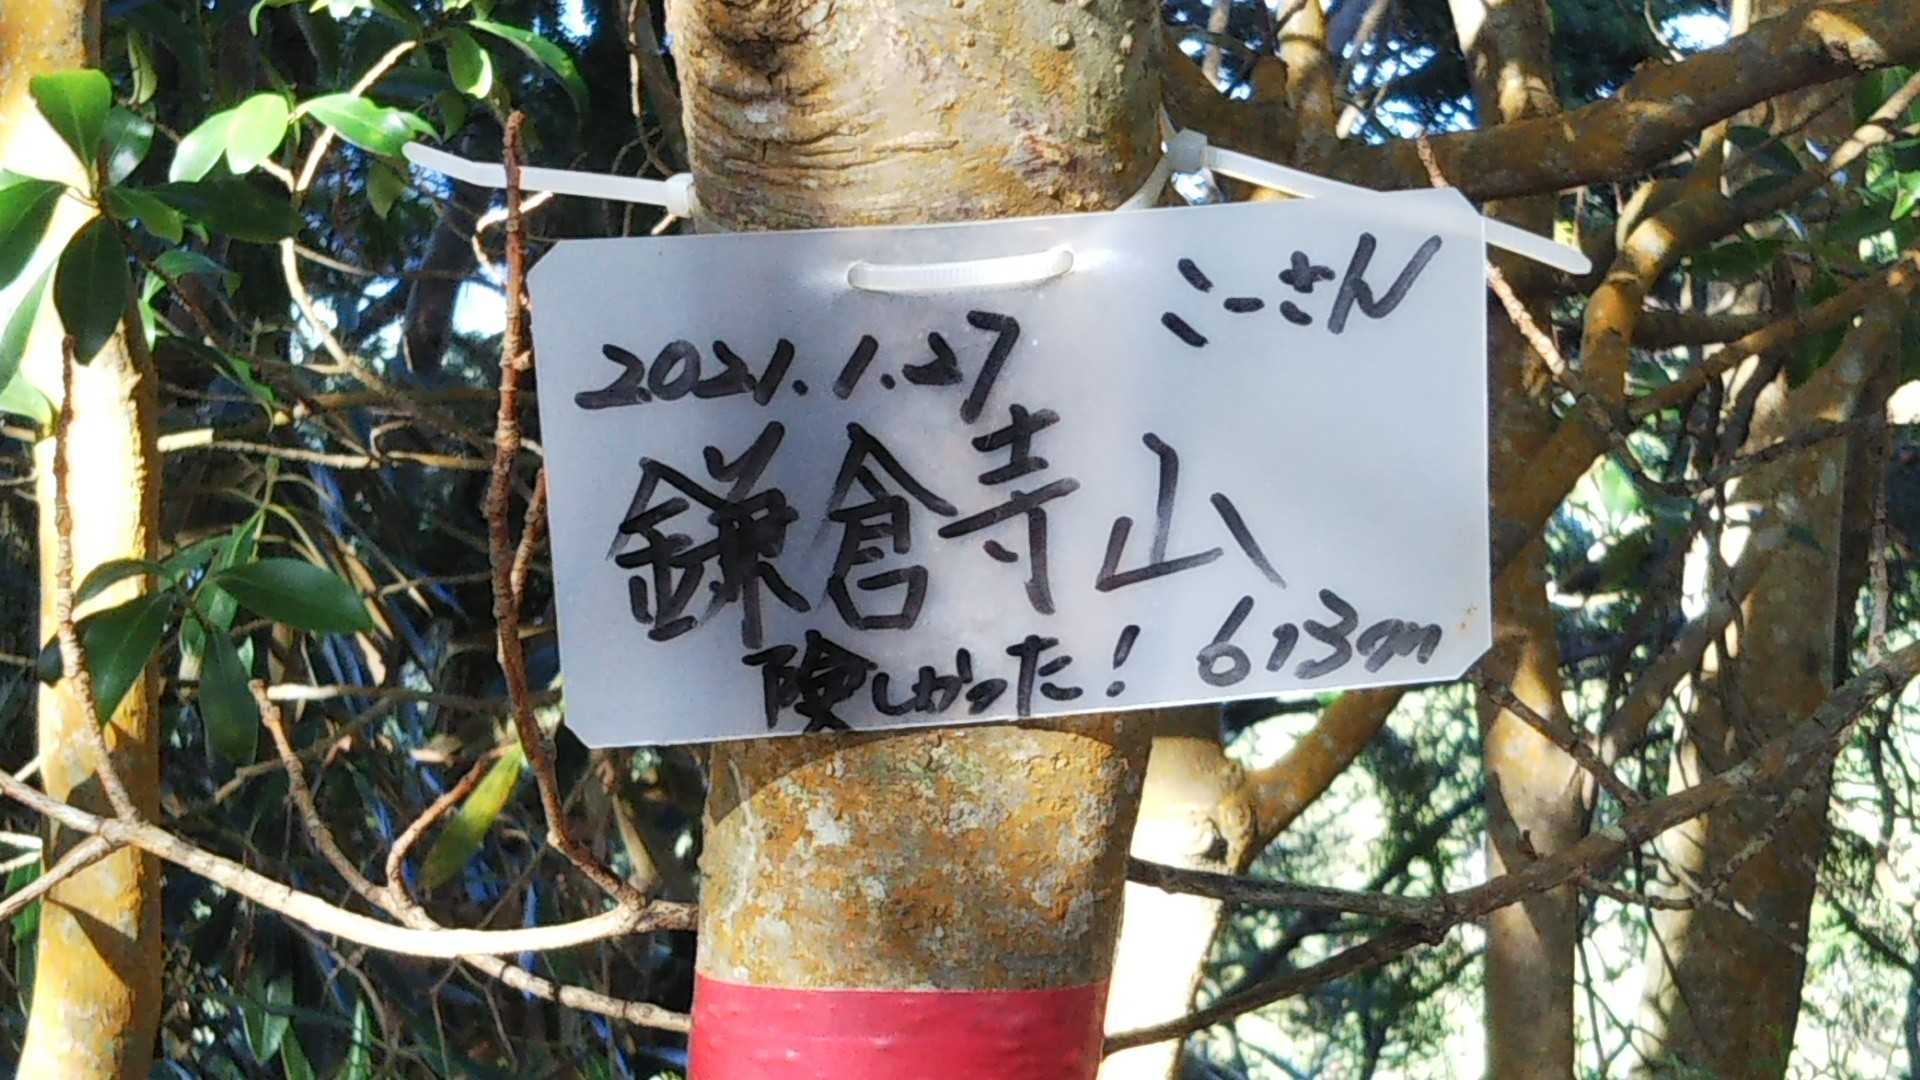 こーさん
2021.1.27
鎌倉寺山
険しかった! 613m